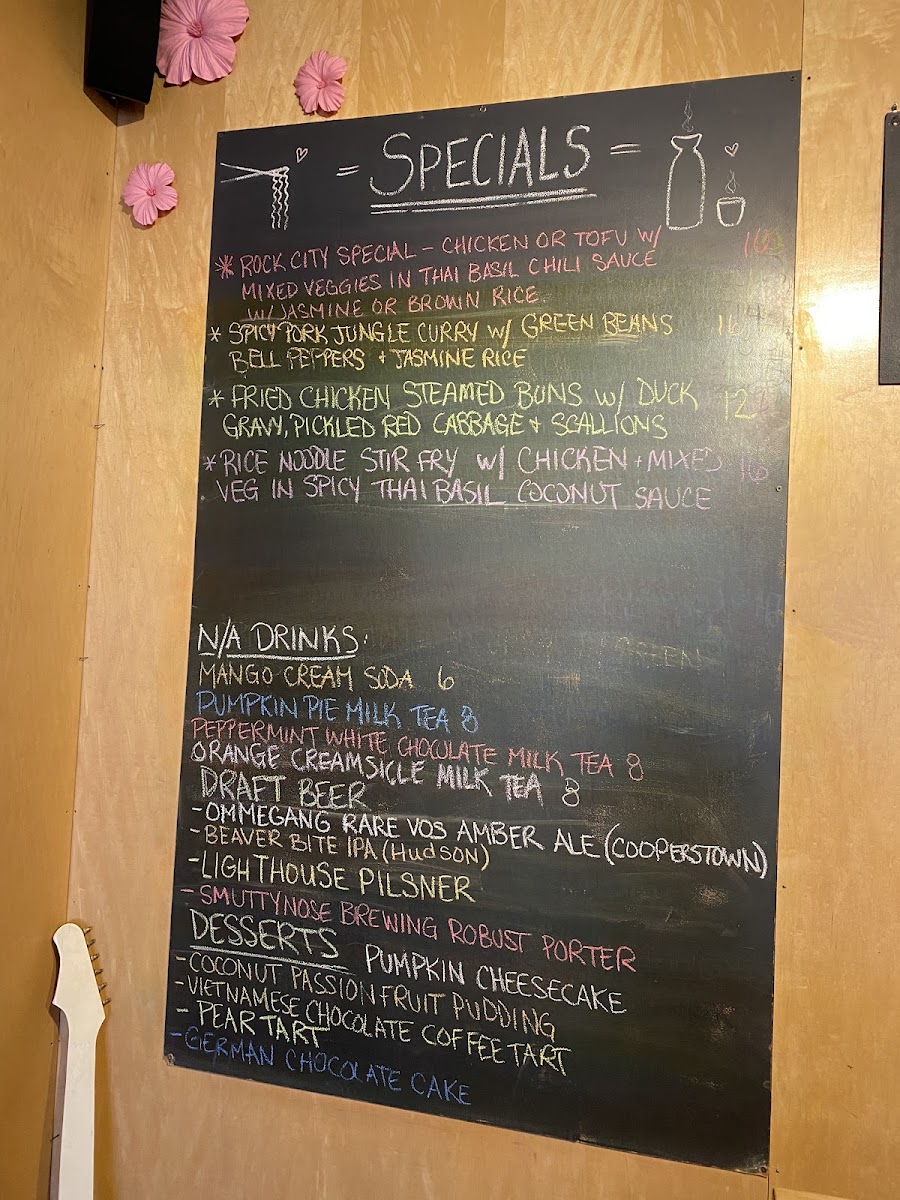 = SPECIALS =
* ROCK CITY SPECIAL - CHICKEN OR TOFU W/
MIXED VEGGIES IN THAI BASIL CHILI SAUCE
W/ JASMINE OR BROWN RICE
* SPICY PORK JUNGLE CURRY W/ GREEN BEANS
BELL PEPPERS + JASMINE RICE
* FRIED CHICKEN STEAMED BUNS W/ DUCK 12
GRAVY, PICKLED RED CABBAGE + SCALLIONS
* RICE NOODLE STIR FRY W/ CHICKEN + MIXED 16
VEG IN SPICY THAI BASIL COCONUT SAUCE
N/A DRINKS:
MANGO CREAM SODA 6
PUMPKIN PIE MILK TEA 8
PEPPERMINT WHITE CHOCOLATE MILK TEA 8
ORANGE CREAMSICLE MILK TEA 8
DRAFT BEER
- OMMEGANG RARE VOS AMBER ALE (COOPERSTOWN)
- BEAVER BITE IPA (HUDSON)
- LIGHTHOUSE PILSNER
- SMUTTYNOSE BREWING ROBUST PORTER
DESSERTS PUMPKIN CHEESECAKE
- COCONUT PASSIONFRUIT PUDDING
- VIETNAMESE CHOCOLATE COFFEE TART
- PEAR TART
- GERMAN CHOCOLATE CAKE